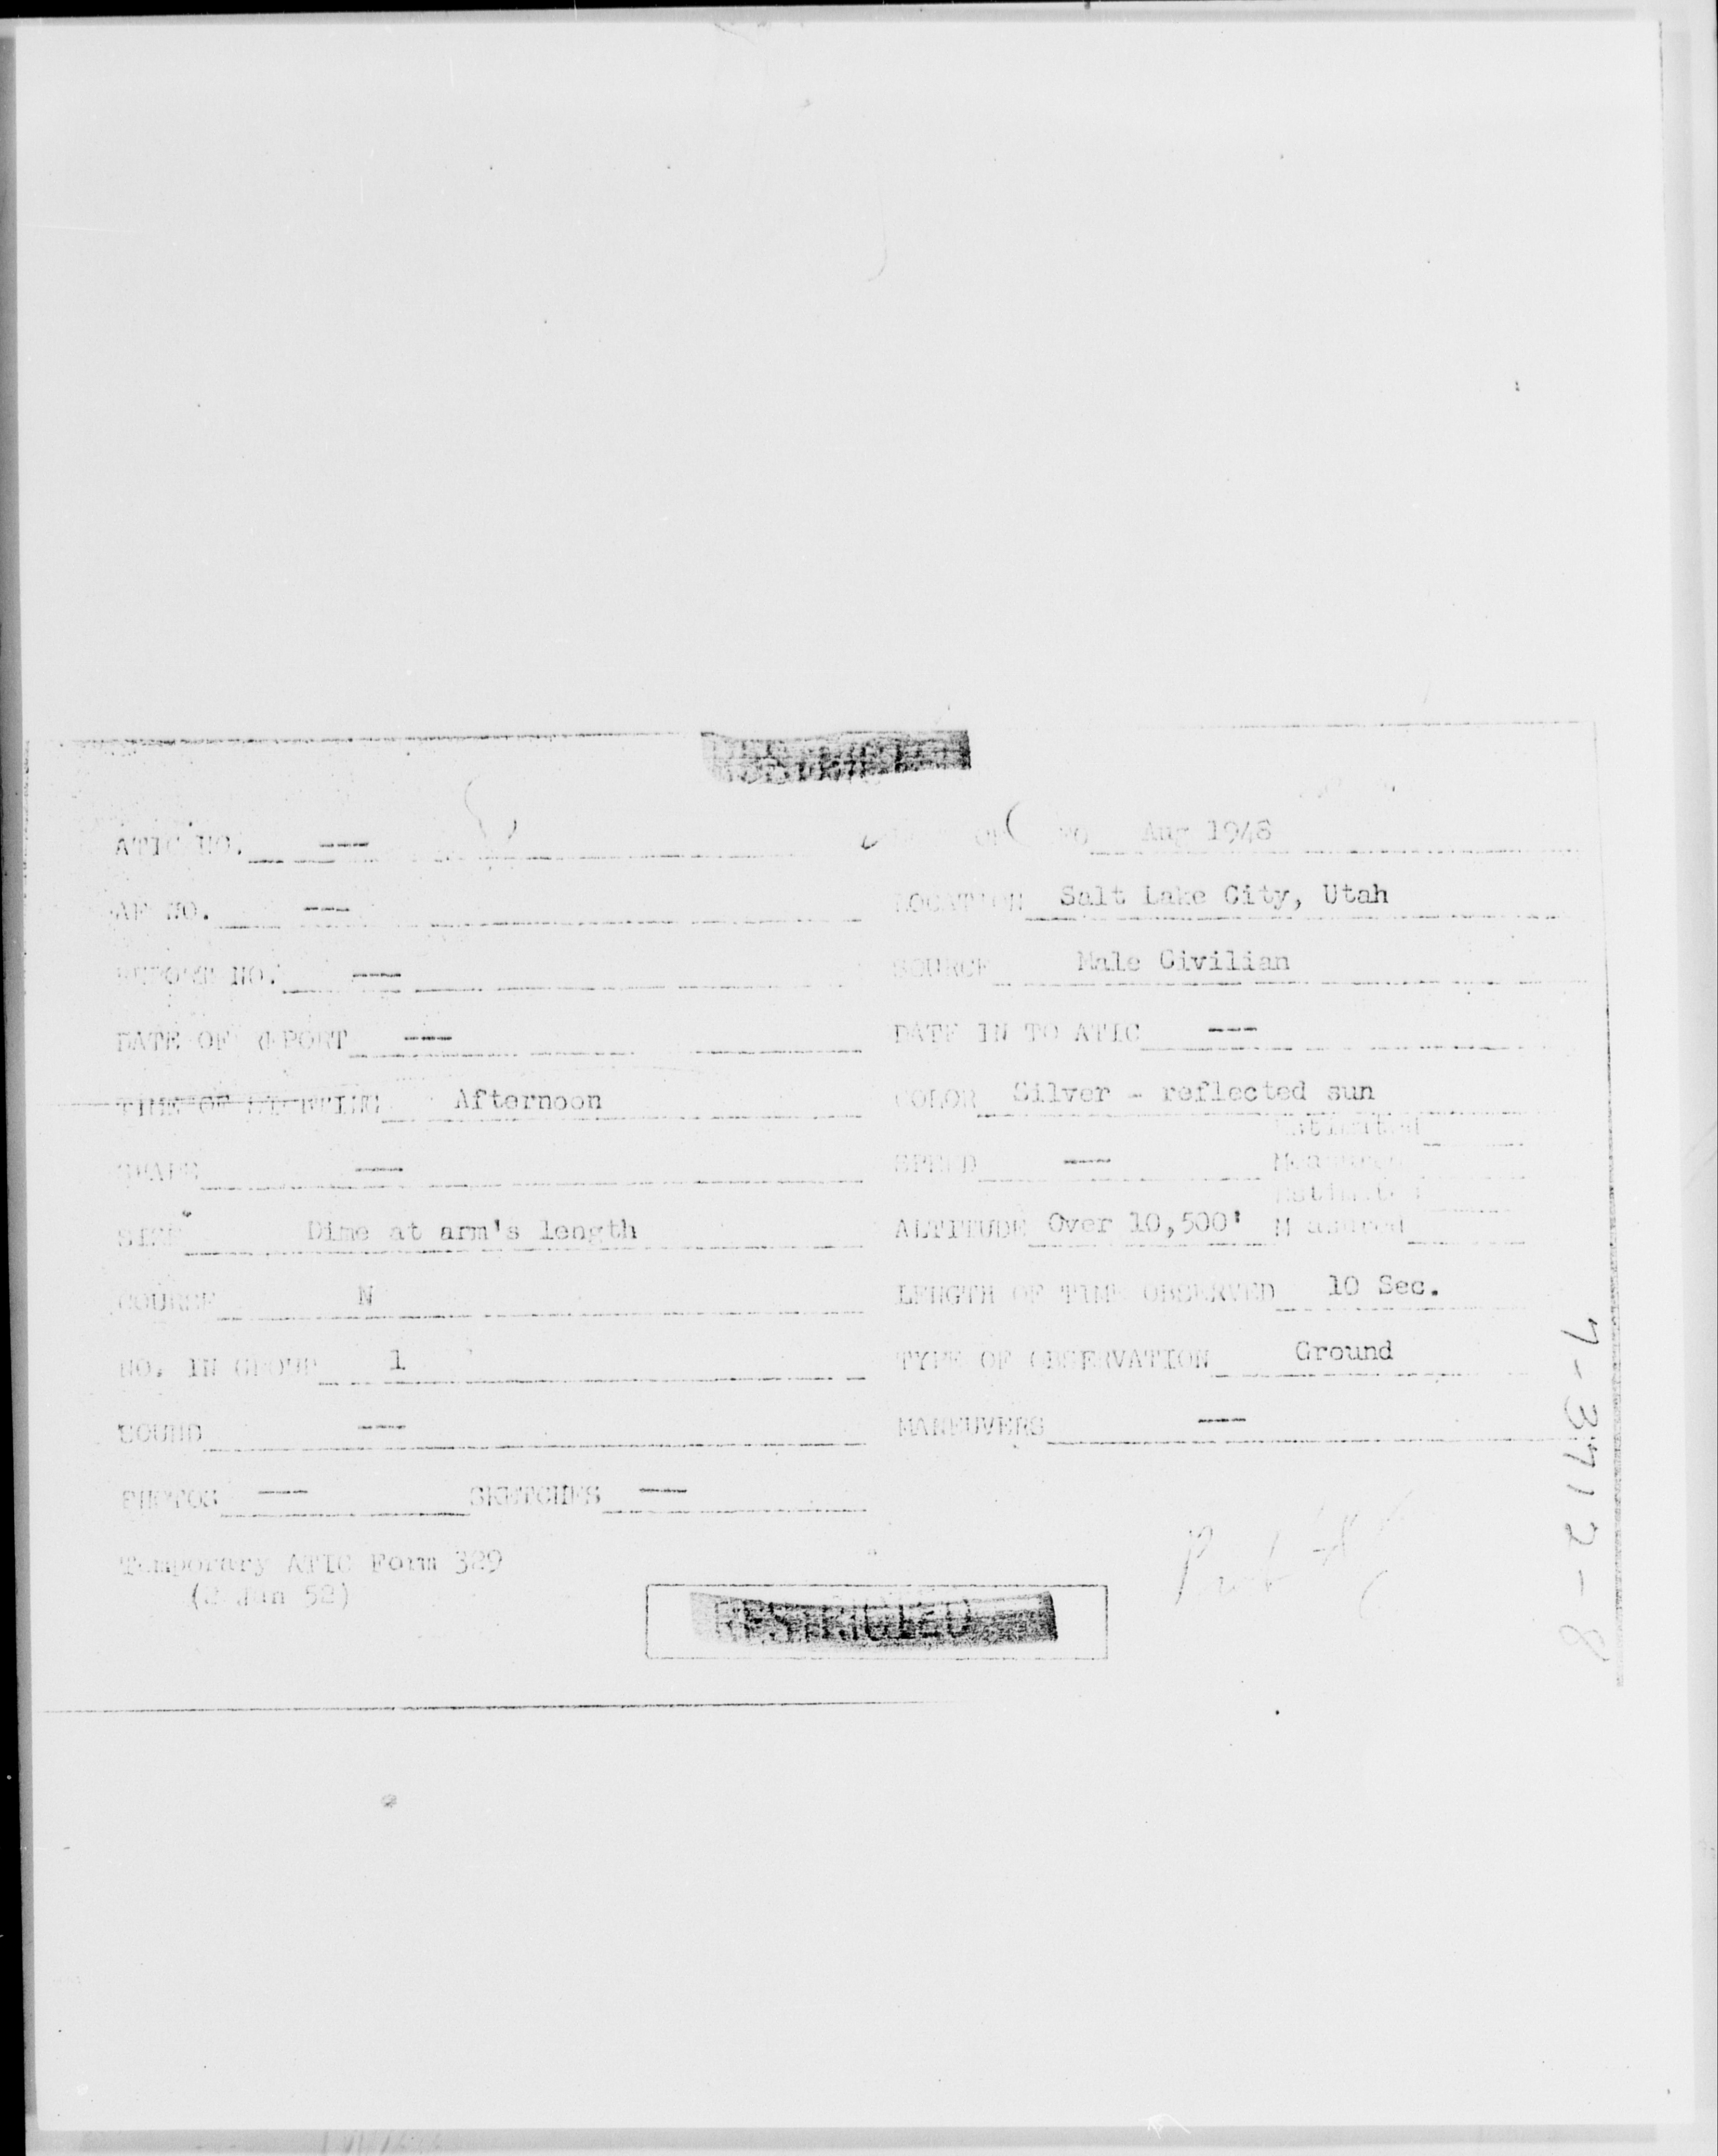 ATIC NO. ---
Aug 1948
AF NO. ---
LOCATION Salt Lake City, Utah
REPORT NO. ---
SOURCE Male Civilian
DATE OF REPORT ---
DATE IN TO ATIC ---
TIME OF SIGHTING Afternoon
COLOR Silver - reflected sun
SHAPE ---
SPEED ---
Estimated
Measured
SIZE Dime at arm's length
ALTITUDE Over 10,500'
Estimated
Measured
COURSE N
LENGTH OF TIME OBSERVED 10 Sec.
NO. IN GROUP 1
TYPE OF OBSERVATION Ground
SOUND ---
MANEUVERS ---
PHOTOS --- SKETCHES ---
Temporary ATIC Form 329
(2 Jan 52)
RESTRICTED
7-3712-8